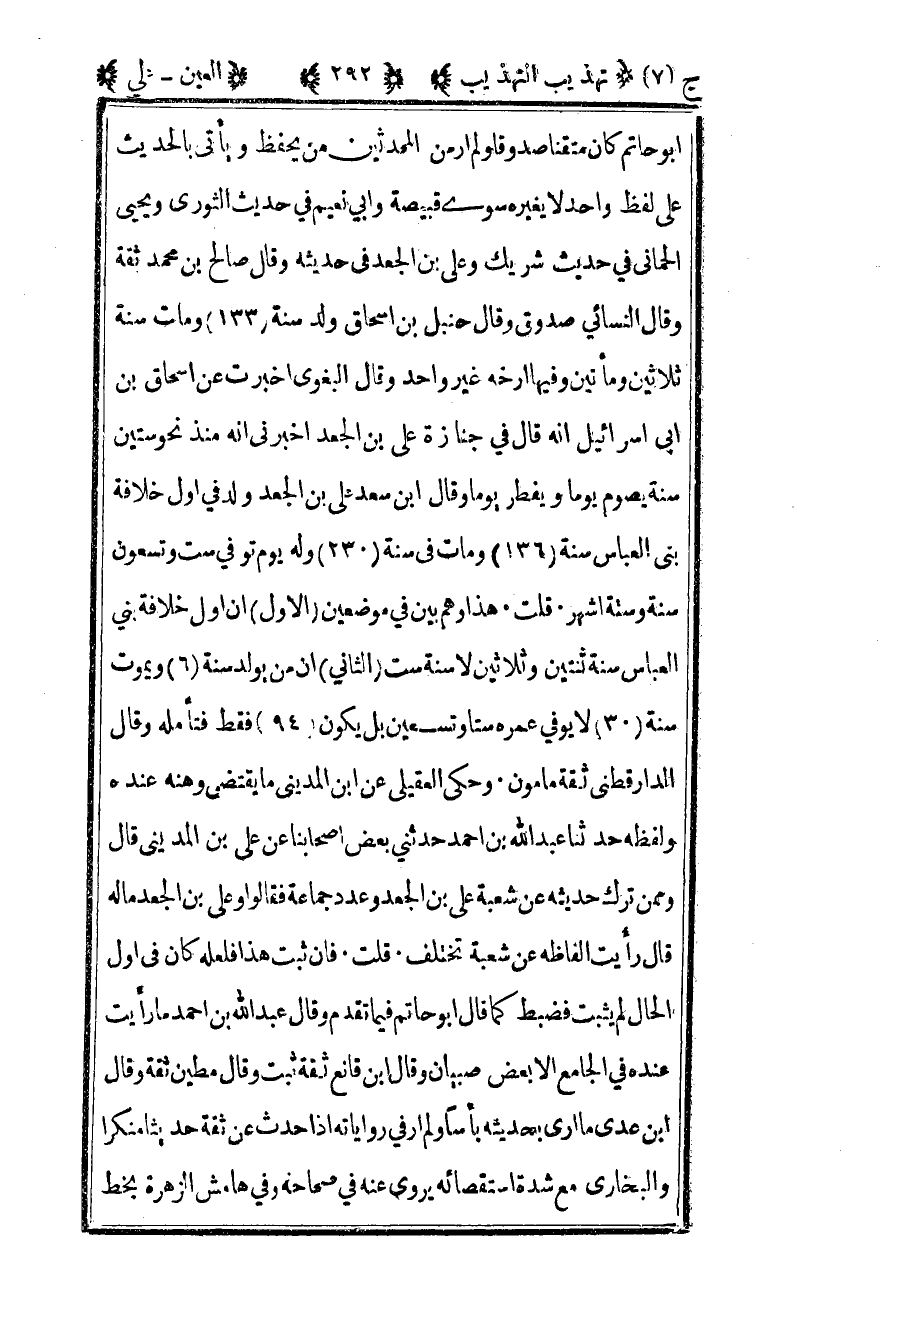 ج (٧) ﴿ تهذيب التهذيب ﴾ ﴿ ٢٩٢ ﴾ ﴿ العين - علي ﴾
ابوحاتم كان متقنا صدوقا ولم ار من المحدثين من يحفظ و يأتى بالحديث
على لفظ واحد لا يغيره سوى قبيصة وابي نعيم في حديث الثورى ويحيى
الحمانى في حديث شريك وعلى بن الجعد فى حديثه وقال صالح بن محمد ثقة
وقال النسائي صدوق وقال حنبل بن اسحاق ولد سنة (١٣٣) ومات سنة
ثلاثين ومأتين وفيها ارخه غير واحد وقال البغوى اخبرت عن اسحاق بن
ابى اسرائيل انه قال في جنازة على بن الجعد اخبرنى انه منذ نحو ستين
سنة يصوم يوما و يفطر يوما وقال ابن سعد على بن الجعد ولد في اول خلافة
بنى العباس سنة (١٣٦) ومات فى سنة (٢٣٠) وله يوم توفي ست وتسعون
سنة وستة اشهر · قلت · هذا وهم بين في موضعين (الاول) ان اول خلافة بني
العباس سنة ثنتين وثلاثين لا سنة ست (الثاني) ان من يولد سنة (٦) ويموت
سنة (٣٠) لا يوفي عمره ستا وتسعين بل يكون (٩٤) فقط فتأمله وقال
الدارقطنى ثقة مامون · وحكى العقيلى عن ابن المدينى ما يقتضى وهنه عنده
ولفظه حد ثنا عبد الله بن احمد حدثني بعض اصحابنا عن على بن المدينى قال
وممن ترك حديثه عن شعبة على بن الجعد وعدد جماعة فقالوا وعلى بن الجعد ماله
قال رأيت الفاظه عن شعبة تختلف · قلت · فان ثبت هذا فلعله كان فى اول
الحال لم يثبت فضبط كما قال ابوحاتم فيما تقدم وقال عبد الله بن احمد ما رأيت
عنده في الجامع الا بعض صبيان وقال ابن قانع ثقة ثبت وقال مطين ثقة وقال
ابن عدى ما ارى بحديثه بأسا ولم ار في رواياته اذا حدث عن ثقة حديثا منكرا
والبخارى مع شدة استقصائه يروى عنه في صحاحه وفي هامش الزهرة بخط